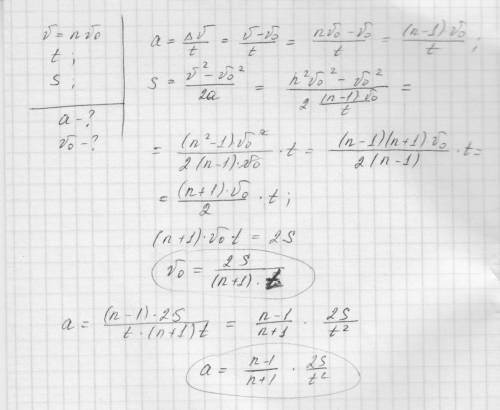 v = n v₀
t ;
s ;
a - ?
v₀ - ?
a = Δv/t = (v - v₀)/t = (n v₀ - v₀)/t = (n-1) v₀/t ;
s = (v² - v₀²)/2a = (n² v₀² - v₀²)/(2 (n-1) v₀/t) =
= (n² - 1) v₀²/(2 (n-1) · v₀) · t = (n-1)(n+1) v₀/(2 (n-1)) · t =
= (n+1) · v₀/2 · t ;
(n+1) · v₀ · t = 2S
v₀ = 2S/((n+1) · t)
a = (n-1) · 2S/(t · (n+1) t) = (n-1)/(n+1) · 2S/t²
a = (n-1)/(n+1) · 2S/t²